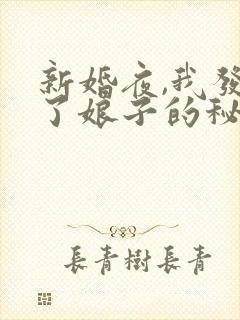 新婚夜,我發
了娘子的秘
長青樹長青